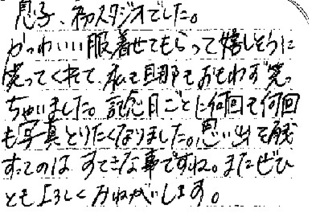 息子、初スタジオでした。
かっわいい服着せてもらって嬉しそうに
笑ってくれて、私も旦那もおもわず笑っ
ちゃいました。記念日ごとに何回も何回
も写真とりたくなりました。思い出を残
すってのは すてきな事ですね。またぜひ
ともよろしくおねがいします。